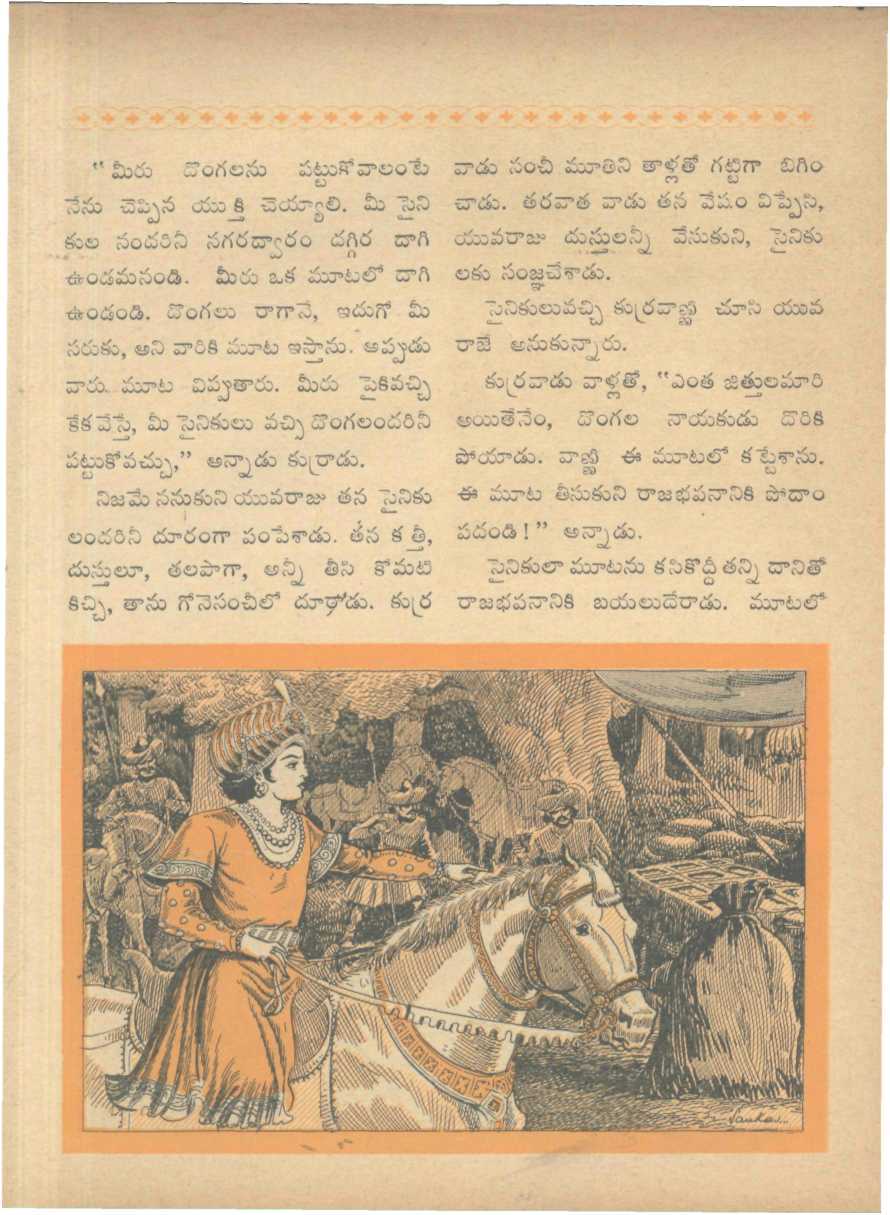 “మీరు దొంగలను పట్టుకోవాలంటే
నేను చెప్పిన యుక్తి చెయ్యాలి. మీ సైని
కుల నందరినీ నగరద్వారం దగ్గిర దాగి
ఉండమనండి. మీరు ఒక మూటలో దాగి
ఉండండి. దొంగలు రాగానే, ఇదుగో మీ
సరుకు, అని వారికి మూట ఇస్తాను. అప్పుడు
వారు మూట విప్పుతారు. మీరు పైకివచ్చి
కేక వేస్తే, మీ సైనికులు వచ్చి దొంగలందరినీ
పట్టుకోవచ్చు,” అన్నాడు కుర్రాడు.
నిజమే ననుకుని యువరాజు తన సైనికు
లందరినీ దూరంగా పంపేశాడు. తన కత్తీ,
దుస్తులూ, తలపాగా, అన్నీ తీసి కోమటి
కిచ్చి, తాను గోనెసంచీలో దూర్తాడు. కుర్ర
వాడు సంచీ మూతిని తాళ్లతో గట్టిగా బిగిం
చాడు. తరవాత వాడు తన వేషం విప్పేసి,
యువరాజు దుస్తులన్నీ వేసుకుని, సైనికు
లకు సంజ్ఞచేశాడు.
సైనికులువచ్చి కుర్రవాణ్ణి చూసి యువ
రాజే అనుకున్నారు.
కుర్రవాడు వాళ్లతో, “ఎంత జిత్తులమారి
అయితేనేం, దొంగల నాయకుడు దొరికి
పోయాడు. వాణ్ణి ఈ మూటలో కట్టేశాను.
ఈ మూట తీసుకుని రాజభవనానికి పోదాం
పదండి!” అన్నాడు.
సైనికులా మూటను కసికొద్దీ తన్ని దానితో
రాజభవనానికి బయలుదేరాడు. మూటలో
Sankar..